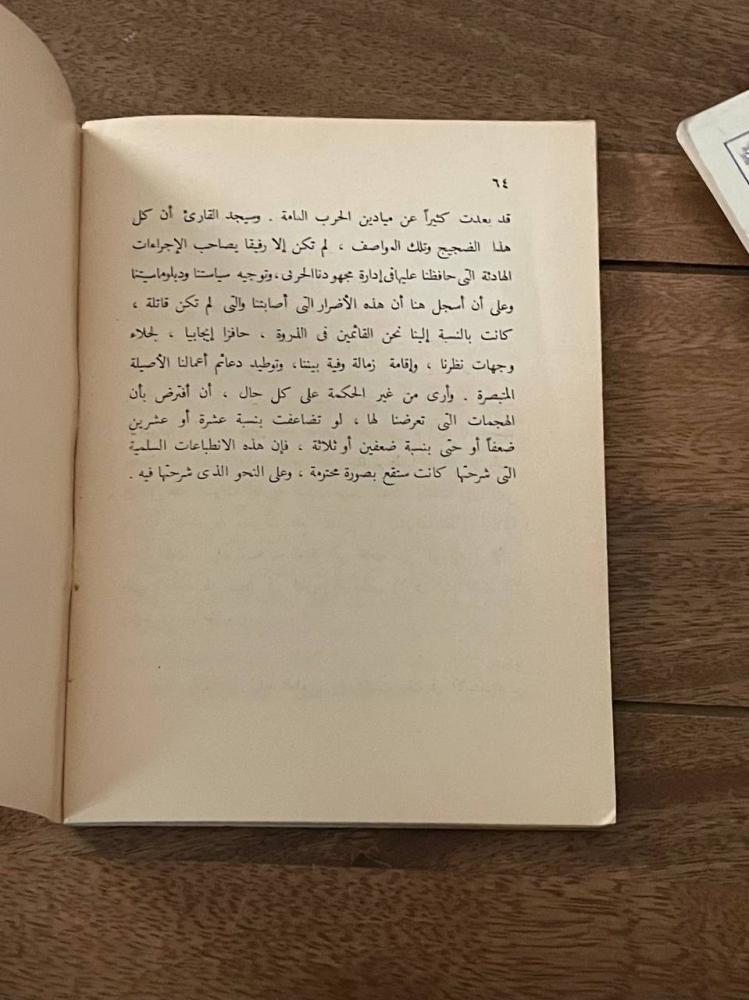 ٦٤
قد بعدت كثيراً عن ميادين الحرب الهامة . وسيجد القارئ أن كل
هذا الضجيج وتلك العواصف ، لم تكن إلا رفيقا يصاحب الإجراءات
الهادئة التى حافظنا عليها فى إدارة مجهودنا الحربى ، وتوجيه سياستنا ودبلوماسيتنا
وعلى أن أسجل هنا أن هذه الأضرار التى أصابتنا والتى لم تكن قاتلة ،
كانت بالنسبة إلينا نحن القائمين فى الذروة ، حافزا إيجابيا ، لجلاء
وجهات نظرنا ، وإقامة زمالة وفية بيننا، وتوطيد دعائم أعمالنا الأصيلة
المتبصرة . وأرى من غير الحكمة على كل حال ، أن أفترض بأن
الهجمات التى تعرضنا لها ، لو تضاعفت بنسبة عشرة أو عشرين
ضعفاً أو حتى بنسبة ضعفين أو ثلاثة ، فإن هذه الانطباعات السلمية
التى شرحتها كانت ستقع بصورة محترمة ، وعلى النحو الذى شرحتها فيه .